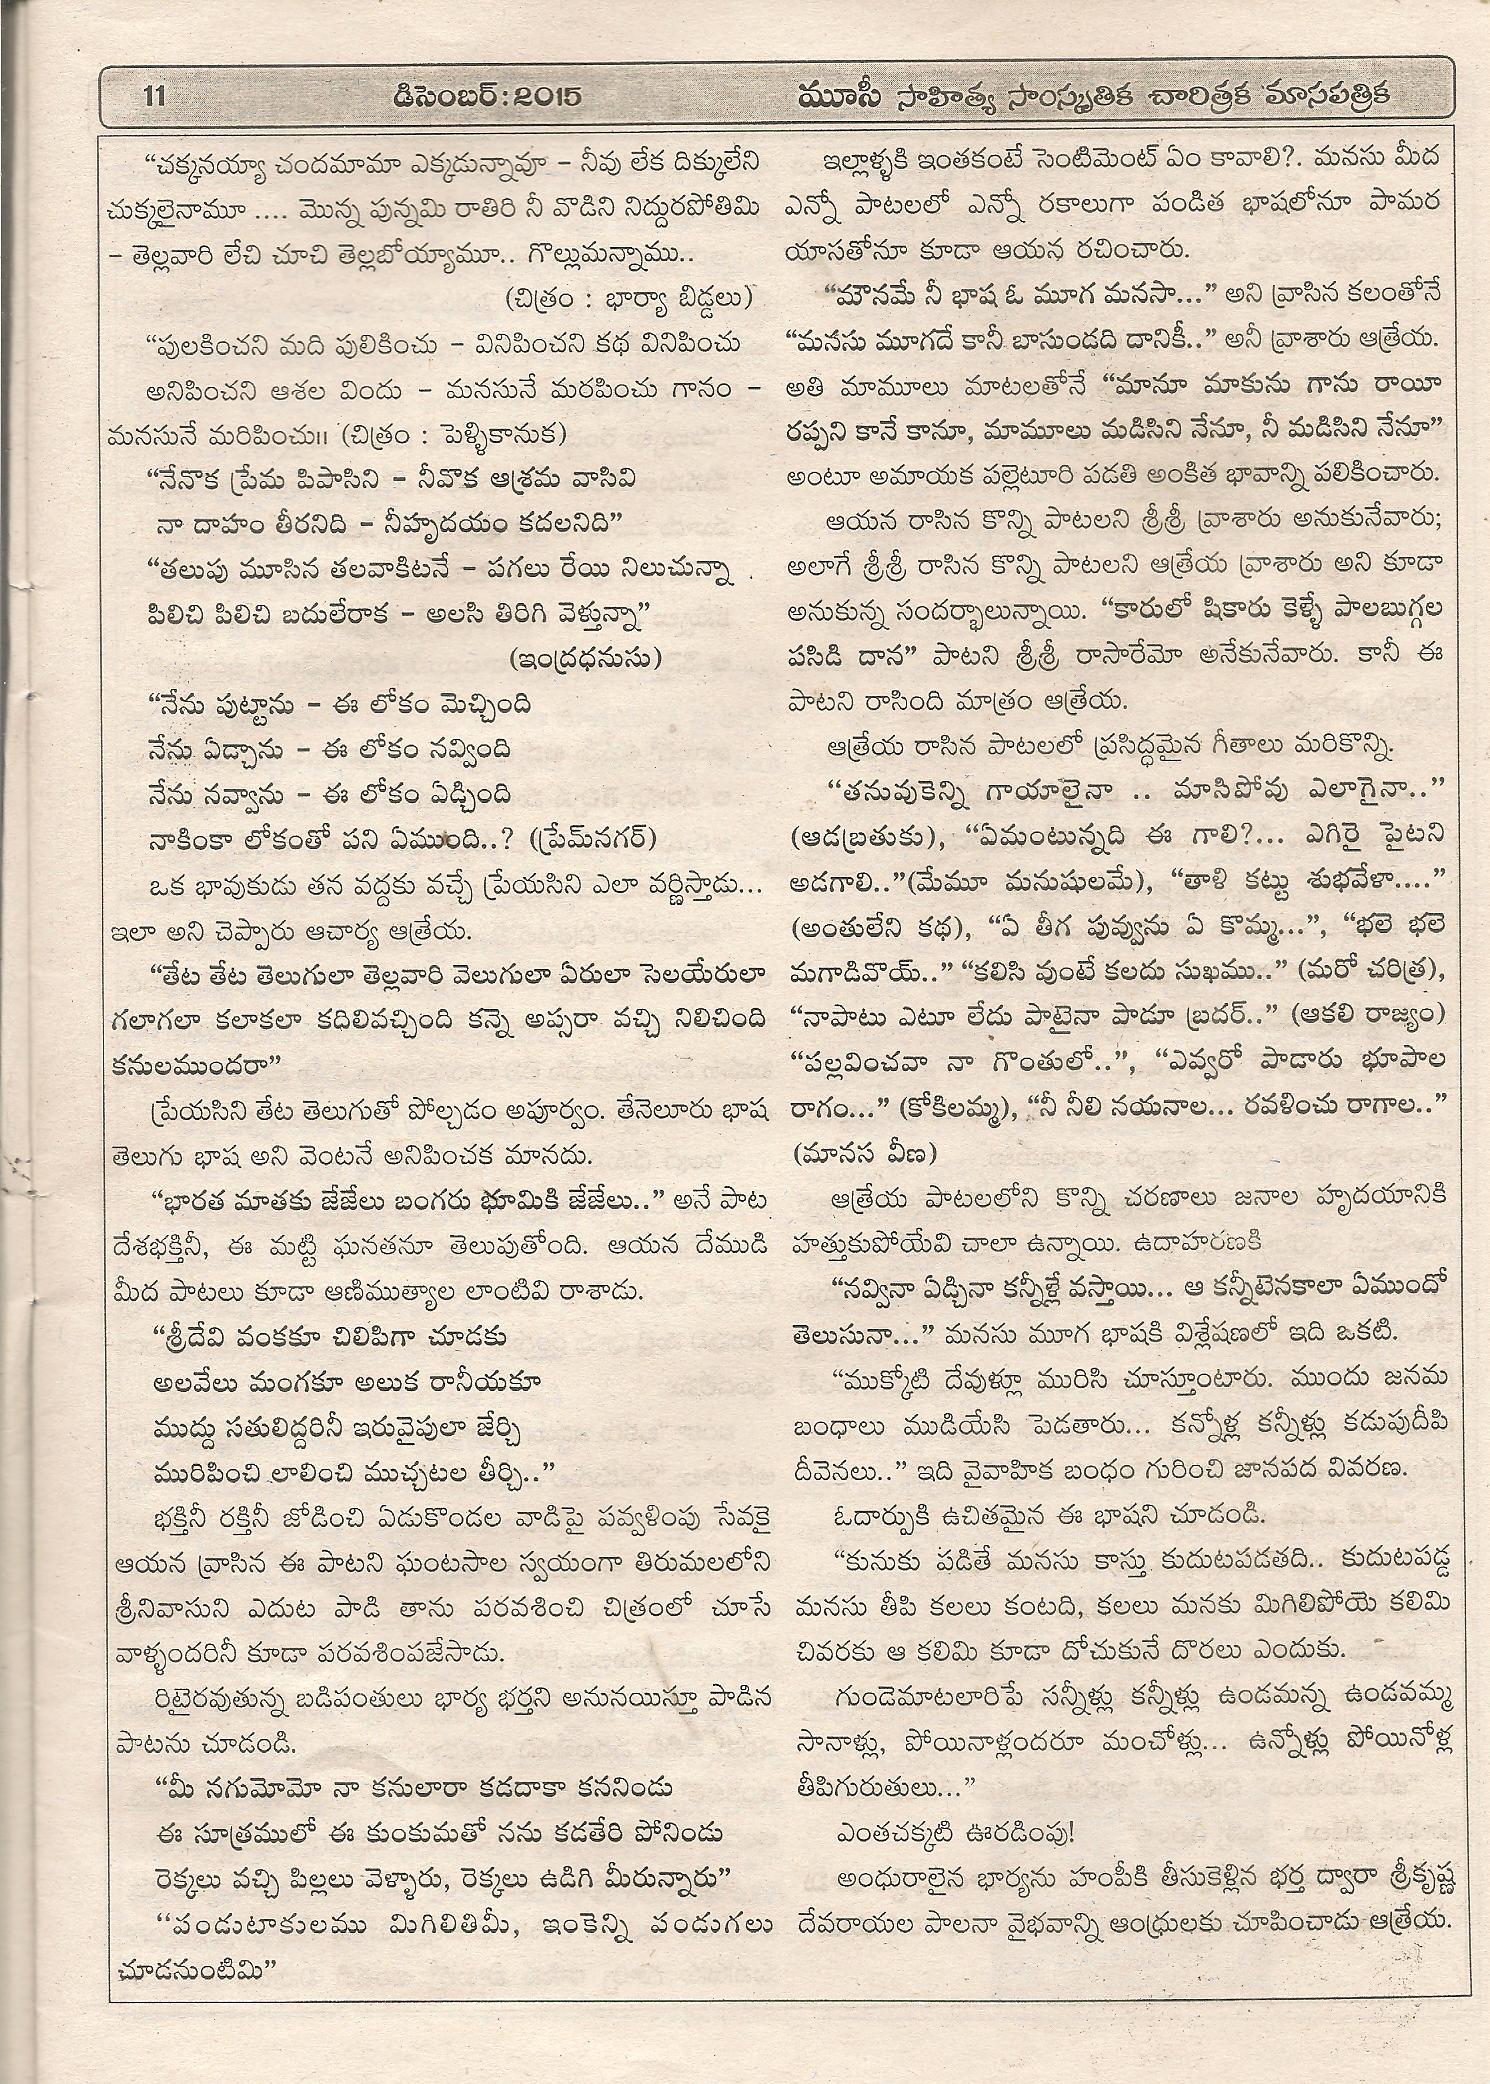 11 డిసెంబర్:2015 మూసీ సాహిత్య సాంస్కృతిక చారిత్రక మాసపత్రిక
“చక్కనయ్యా చందమామా ఎక్కడున్నావూ – నీవు లేక దిక్కులేని
చుక్కలైనామూ .... మొన్న పున్నమి రాతిరి నీ వొడిని నిద్దురపోతిమి
– తెల్లవారి లేచి చూచి తెల్లబోయ్యామూ.. గొల్లుమన్నాము..
(చిత్రం : భార్యా బిడ్డలు)
“పులకించని మది పులికించు – వినిపించని కథ వినిపించు
అనిపించని ఆశల విందు – మనసునే మరపించు గానం –
మనసునే మరిపించు॥ (చిత్రం : పెళ్ళికానుక)
“నేనొక ప్రేమ పిపాసిని – నీవొక ఆశ్రమ వాసివి
నా దాహం తీరనిది – నీహృదయం కదలనిది”
“తలుపు మూసిన తలవాకిటనే – పగలు రేయి నిలుచున్నా
పిలిచి పిలిచి బదులేరాక – అలసి తిరిగి వెళ్తున్నా”
(ఇంద్రధనుసు)
“నేను పుట్టాను – ఈ లోకం మెచ్చింది
నేను ఏడ్చాను – ఈ లోకం నవ్వింది
నేను నవ్వాను – ఈ లోకం ఏడ్చింది
నాకింకా లోకంతో పని ఏముంది..? (ప్రేమ్‌నగర్)
ఒక భావుకుడు తన వద్దకు వచ్చే ప్రేయసిని ఎలా వర్ణిస్తాడు...
ఇలా అని చెప్పారు ఆచార్య ఆత్రేయ.
“తేట తేట తెలుగులా తెల్లవారి వెలుగులా ఏరులా సెలయేరులా
గలాగలా కలాకలా కదిలివచ్చింది కన్నె అప్సరా వచ్చి నిలిచింది
కనులముందరా”
ప్రేయసిని తేట తెలుగుతో పోల్చడం అపూర్వం. తేనెలూరు భాష
తెలుగు భాష అని వెంటనే అనిపించక మానదు.
“భారత మాతకు జేజేలు బంగరు భూమికి జేజేలు..” అనే పాట
దేశభక్తినీ, ఈ మట్టి ఘనతనూ తెలుపుతోంది. ఆయన దేముడి
మీద పాటలు కూడా ఆణిముత్యాల లాంటివి రాశాడు.
“శ్రీదేవి వంకకూ చిలిపిగా చూడకు
అలవేలు మంగకూ అలుక రానీయకూ
ముద్దు సతులిద్దరినీ ఇరువైపులా జేర్చి
మురిపించి లాలించి ముచ్చటల తీర్చి..”
భక్తినీ రక్తినీ జోడించి ఏడుకొండల వాడిపై పవ్వళింపు సేవకై
ఆయన వ్రాసిన ఈ పాటని ఘంటసాల స్వయంగా తిరుమలలోని
శ్రీనివాసుని ఎదుట పాడి తాను పరవశించి చిత్రంలో చూసే
వాళ్ళందరినీ కూడా పరవశింపజేసాడు.
రిటైరవుతున్న బడిపంతులు భార్య భర్తని అనునయిస్తూ పాడిన
పాటను చూడండి.
“మీ నగుమోమో నా కనులారా కడదాకా కననిండు
ఈ సూత్రములో ఈ కుంకుమతో నను కడతేరి పోనిండు
రెక్కలు వచ్చి పిల్లలు వెళ్ళారు, రెక్కలు ఉడిగి మీరున్నారు”
“పండుటాకులము మిగిలితిమీ, ఇంకెన్ని పండుగలు
చూడనుంటిమి”
ఇల్లాళ్ళకి ఇంతకంటే సెంటిమెంట్ ఏం కావాలి?. మనసు మీద
ఎన్నో పాటలలో ఎన్నో రకాలుగా పండిత భాషలోనూ పామర
యాసతోనూ కూడా ఆయన రచించారు.
“మౌనమే నీ భాష ఓ మూగ మనసా...” అని వ్రాసిన కలంతోనే
“మనసు మూగదే కానీ బాసుండది దానికీ..” అనీ వ్రాశారు ఆత్రేయ.
అతి మామూలు మాటలతోనే “మానూ మాకును గాను రాయీ
రప్పని కానే కానూ, మామూలు మడిసిని నేనూ, నీ మడిసిని నేనూ”
అంటూ అమాయక పల్లెటూరి పడతి అంకిత భావాన్ని పలికించారు.
ఆయన రాసిన కొన్ని పాటలని శ్రీశ్రీ వ్రాశారు అనుకునేవారు;
అలాగే శ్రీశ్రీ రాసిన కొన్ని పాటలని ఆత్రేయ వ్రాశారు అని కూడా
అనుకున్న సందర్భాలున్నాయి. “కారులో షికారు కెళ్ళే పాలబుగ్గల
పసిడి దాన” పాటని శ్రీశ్రీ రాసారేమో అనేకునేవారు. కానీ ఈ
పాటని రాసింది మాత్రం ఆత్రేయ.
ఆత్రేయ రాసిన పాటలలో ప్రసిద్ధమైన గీతాలు మరికొన్ని.
“తనువుకెన్ని గాయాలైనా .. మాసిపోవు ఎలాగైనా..”
(ఆడబ్రతుకు), “ఏమంటున్నది ఈ గాలి?... ఎగిరై పైటని
అడగాలి..”(మేమూ మనుషులమే), “తాళి కట్టు శుభవేళా....”
(అంతులేని కథ), “ఏ తీగ పువ్వును ఏ కొమ్మ...”, “భలె భలె
మగాడివొయ్..” “కలిసి వుంటే కలదు సుఖము..” (మరో చరిత్ర),
“నాపాటు ఎటూ లేదు పాటైనా పాడూ బ్రదర్..” (ఆకలి రాజ్యం)
“పల్లవించవా నా గొంతులో..”, “ఎవ్వరో పాడారు భూపాల
రాగం...” (కోకిలమ్మ), “నీ నీలి నయనాల... రవళించు రాగాల..”
(మానస వీణ)
ఆత్రేయ పాటలలోని కొన్ని చరణాలు జనాల హృదయానికి
హత్తుకుపోయేవి చాలా ఉన్నాయి. ఉదాహరణకి
“నవ్వినా ఏడ్చినా కన్నీళ్లే వస్తాయి... ఆ కన్నీటెనకాలా ఏముందో
తెలుసునా...” మనసు మూగ భాషకి విశ్లేషణలో ఇది ఒకటి.
“ముక్కోటి దేవుళ్లూ మురిసి చూస్తూంటారు. ముందు జనమ
బంధాలు ముడియేసి పెడతారు... కన్నోళ్ల కన్నీళ్లు కడుపుదీపి
దీవెనలు..” ఇది వైవాహిక బంధం గురించి జానపద వివరణ.
ఓదార్పుకి ఉచితమైన ఈ భాషని చూడండి.
“కునుకు పడితే మనసు కాస్తు కుదుటపడతది.. కుదుటపడ్డ
మనసు తీపి కలలు కంటది, కలలు మనకు మిగిలిపోయె కలిమి
చివరకు ఆ కలిమి కూడా దోచుకునే దొరలు ఎందుకు.
గుండెమాటలారిపే సన్నీళ్లు కన్నీళ్లు ఉండమన్న ఉండవమ్మ
సానాళ్లు, పోయినాళ్లందరూ మంచోళ్లు... ఉన్నోళ్లు పోయినోళ్ల
తీపిగురుతులు...”
ఎంతచక్కటి ఊరడింపు!
అంధురాలైన భార్యను హంపీకి తీసుకెళ్లిన భర్త ద్వారా శ్రీకృష్ణ
దేవరాయల పాలనా వైభవాన్ని ఆంధ్రులకు చూపించాడు ఆత్రేయ.